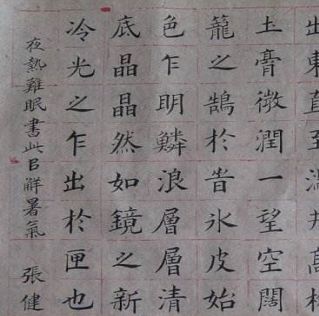 出東直至滿井高柳
圡膏微潤一望空闊
籠之鵠於旹氷皮始
色乍明鱗浪層層清
底晶晶然如鏡之新
冷光之乍出於匣也
夜熱難眠書此㠯解暑氣 張健